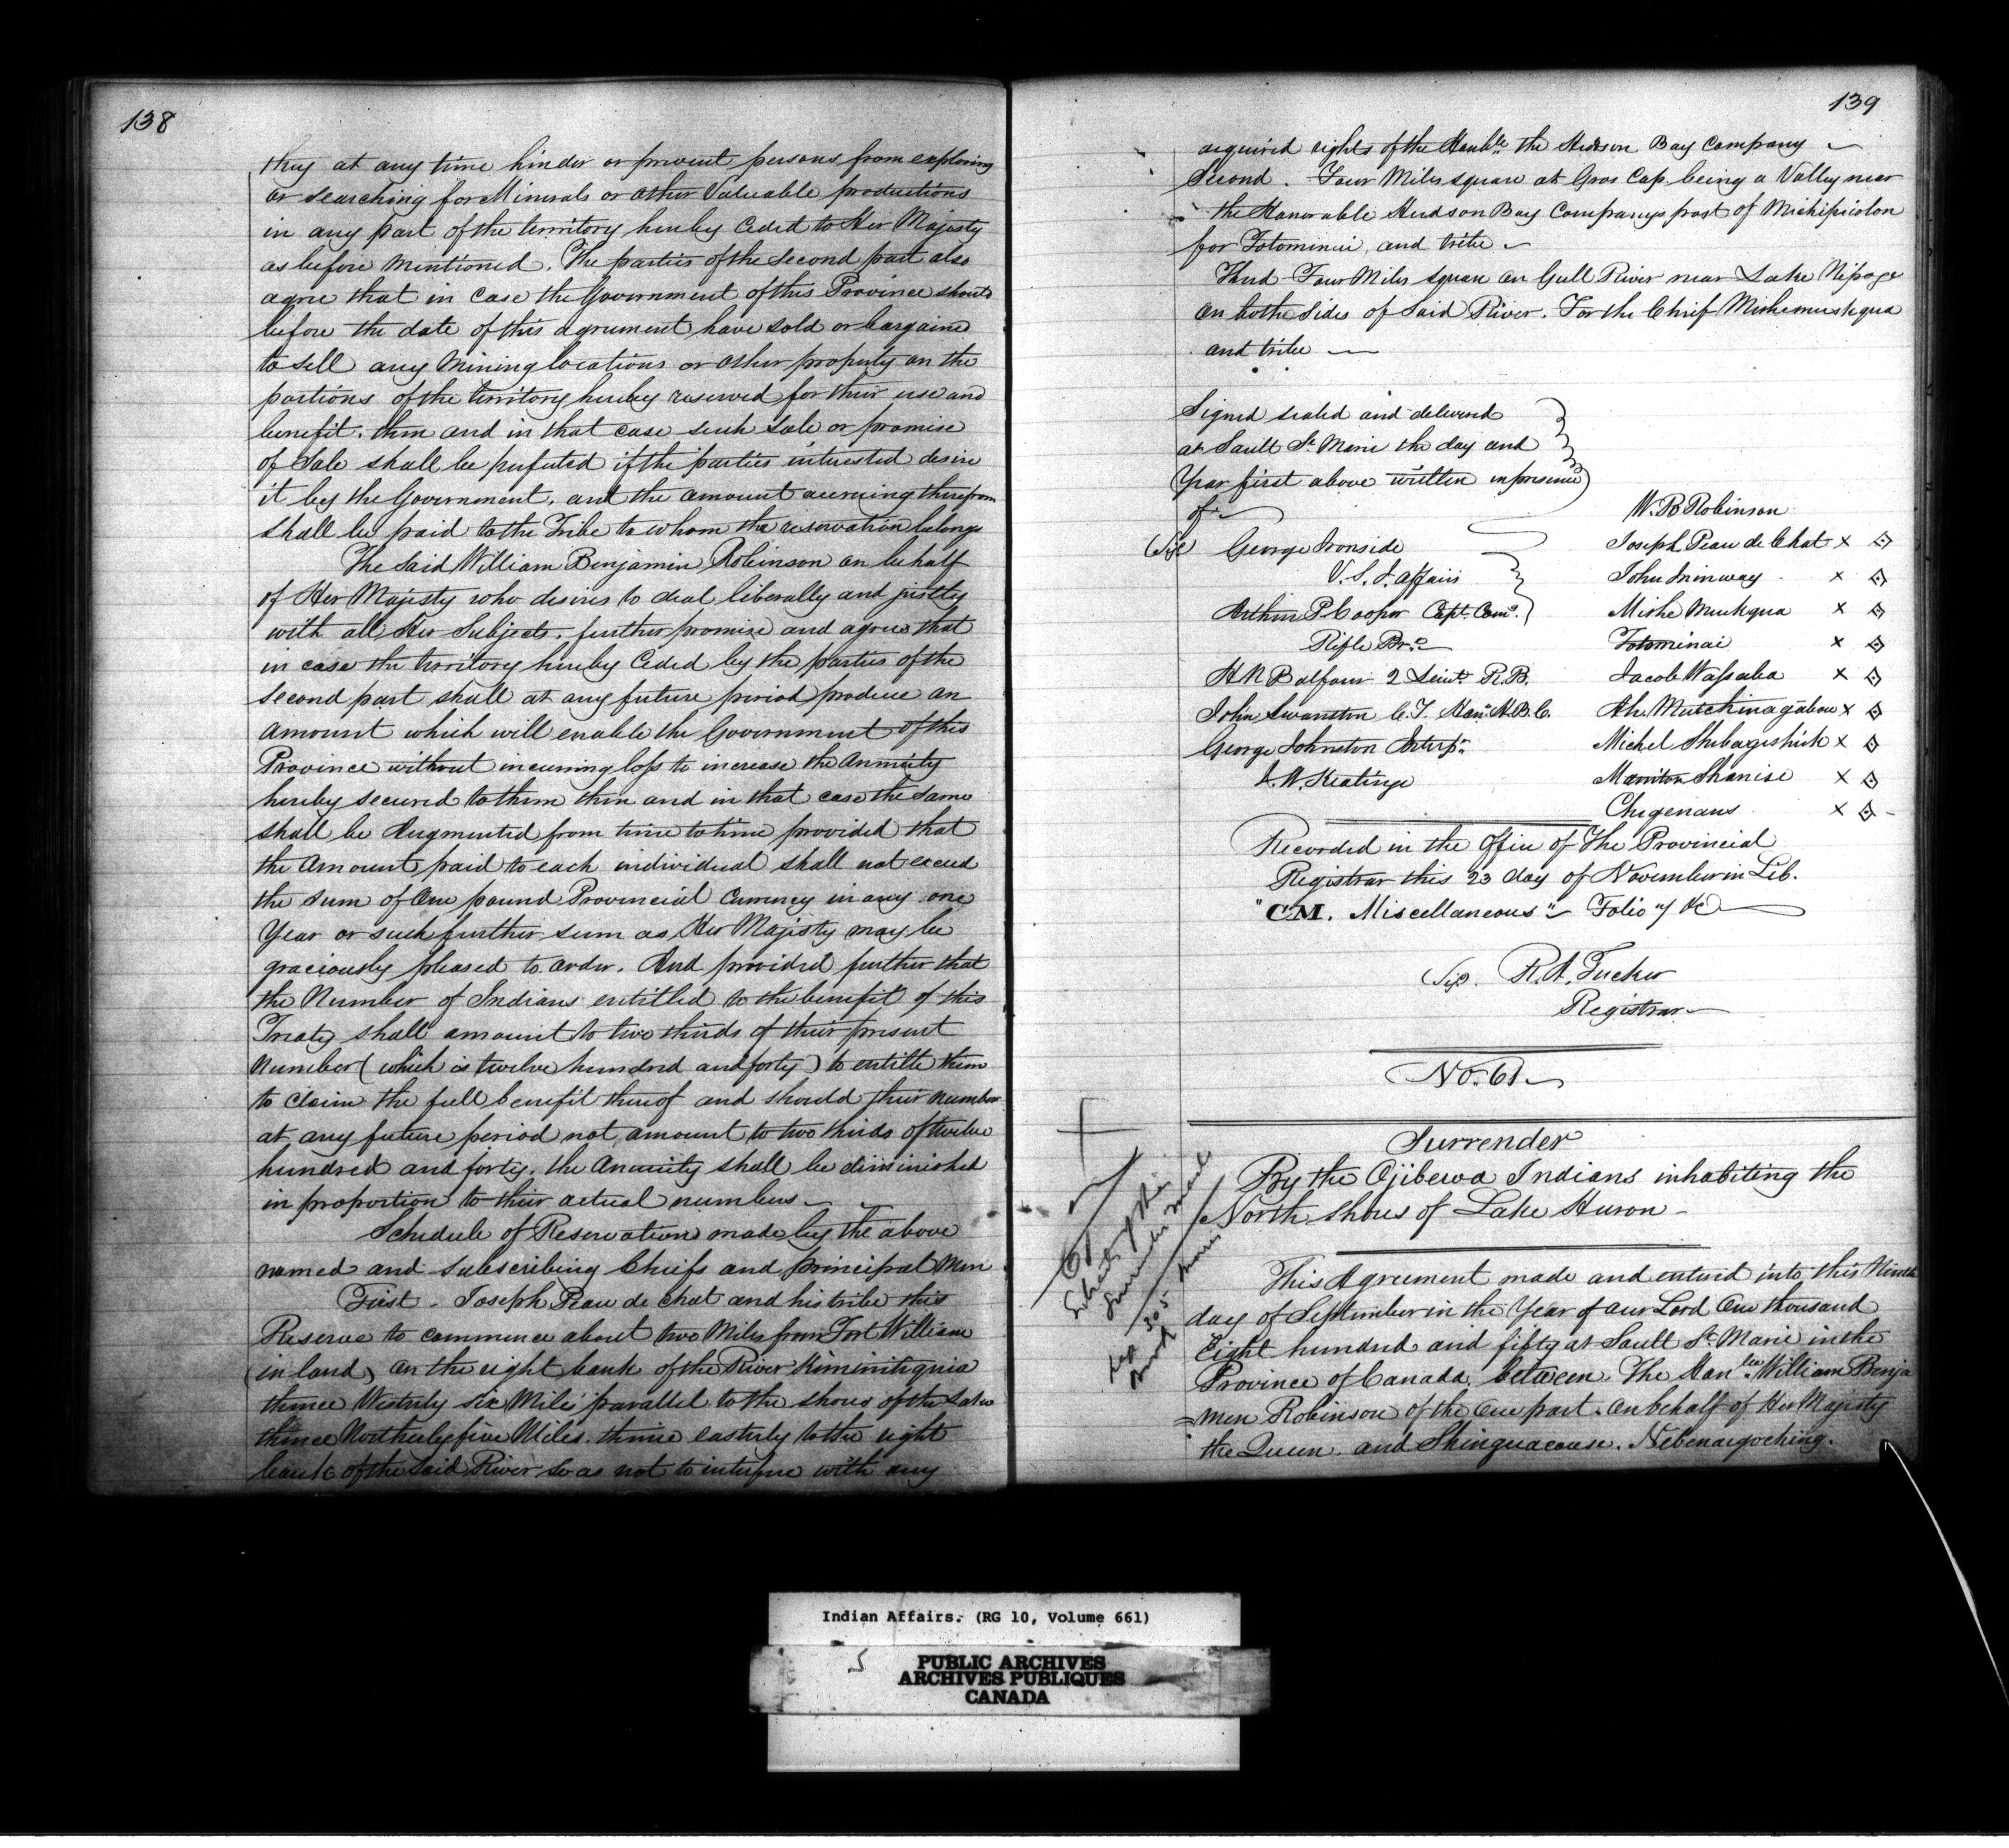 138
they at any time hinder or prevent persons from exploring
or searching for Minerals or other Valuable productions
in any part of the territory hereby Ceded to Her Majesty
as before mentioned. The parties of the Second part also
agree that in case the Government of this Province should
before the date of this agreement have sold or bargained
to sell any mining locations or other property on the
portions of the territory hereby reserved for their use and
benefit. then and in that case such sale or promise
of Sale shall be perfected if the parties interested desire
it by the Government. and the amount accruing therefrom
shall be paid to the Tribe to whom the reservation belongs
The Said William Benjamin Robinson on behalf
of Her Majesty who desires to deal liberally and justly
with all Her Subjects. further promises and agrees that
in case the territory hereby Ceded by the parties of the
second part shall at any future period produce an
amount which will enable the Government of this
Province without incurring loss to increase the Annuity
hereby secured to them then and in that case the same
shall be Augmented from time to time provided that
the Amount paid to each individual shall not exceed
the sum of One pound Provincial Currency in any one
Year or such further sum as Her Majesty may be
graciously pleased to order. And provided further that
the Number of Indians entitled to the benefit of this
Treaty shall amount to two thirds of their present
Number (which is twelve hundred and forty) to entitle them
to claim the full benefit thereof and should their number
at any future period not amount to two thirds of twelve
hundred and forty. the Annuity shall be diminished
in proportion to their actual numbers
Schedule of Reservations made by the above
named and subscribing Chiefs and principal Men
First - Joseph Peau de Chat and his tribe this
Reserve to commence about two Miles from Fort William
(in land) on the right bank of the River Kiministiquia
thence Westerly six Miles parallel to the shores of the Lake
thence Northerly five Miles. thence easterly to the right
bank of the Said River so as not to interfere with any
139
acquired rights of the Honble. the Hudson Bay Company
Second. Four Miles square at Gros Cap being a Valley near
the Honorable Hudson Bay Companys post of Michipicoton
for Totominai, and tribe
Third Four Miles square on Gull River near Lake Nipage
on bothe Sides of Said River. For the Chief Mishemuckqua
and tribe
Signed sealed and delivered
at Sault St. Marie the day and
Year first above written in presence
of
W. B Robinson
(Sige) George Ironside Joseph Peau de Chat x
V. S. I. affairs John Ininway x
Arthur P Cooper Capt. Com. Mishe Muckqua x
Rifle Br. Totominai x
H N Balfour 2 Lieut. R. B. Jacob Wassaba x
John Swanston C. T. Hon. H. B. C. Ah. Mutchinagabow x
George Johnston Interp. Michel Shebageshick x
J. W. Keating Manitou Shanise x
Chigenans x
Recorded in the Office of The Provincial
Registrar this 23 day of November in Lib.
"CM. Miscellaneous" Folio "1 &c
Sige. R. A. Tucker
Registrar
No. 61
Surrender
By the Ojibewa Indians inhabiting the
North shores of Lake Huron -
61
This Agreement made and entered into this Ninth
day of September in the Year of our Lord One thousand
Eight hundred and fifty at Sault St. Marie in the
Province of Canada. between. The Honble. William Benja
=men Robinson of the one part. on behalf of Her Majesty
the Queen. and Shinguacouse. Nebenaigoching.
Indian Affairs. (RG 10, Volume 661)
PUBLIC ARCHIVES
ARCHIVES PUBLIQUES
CANADA